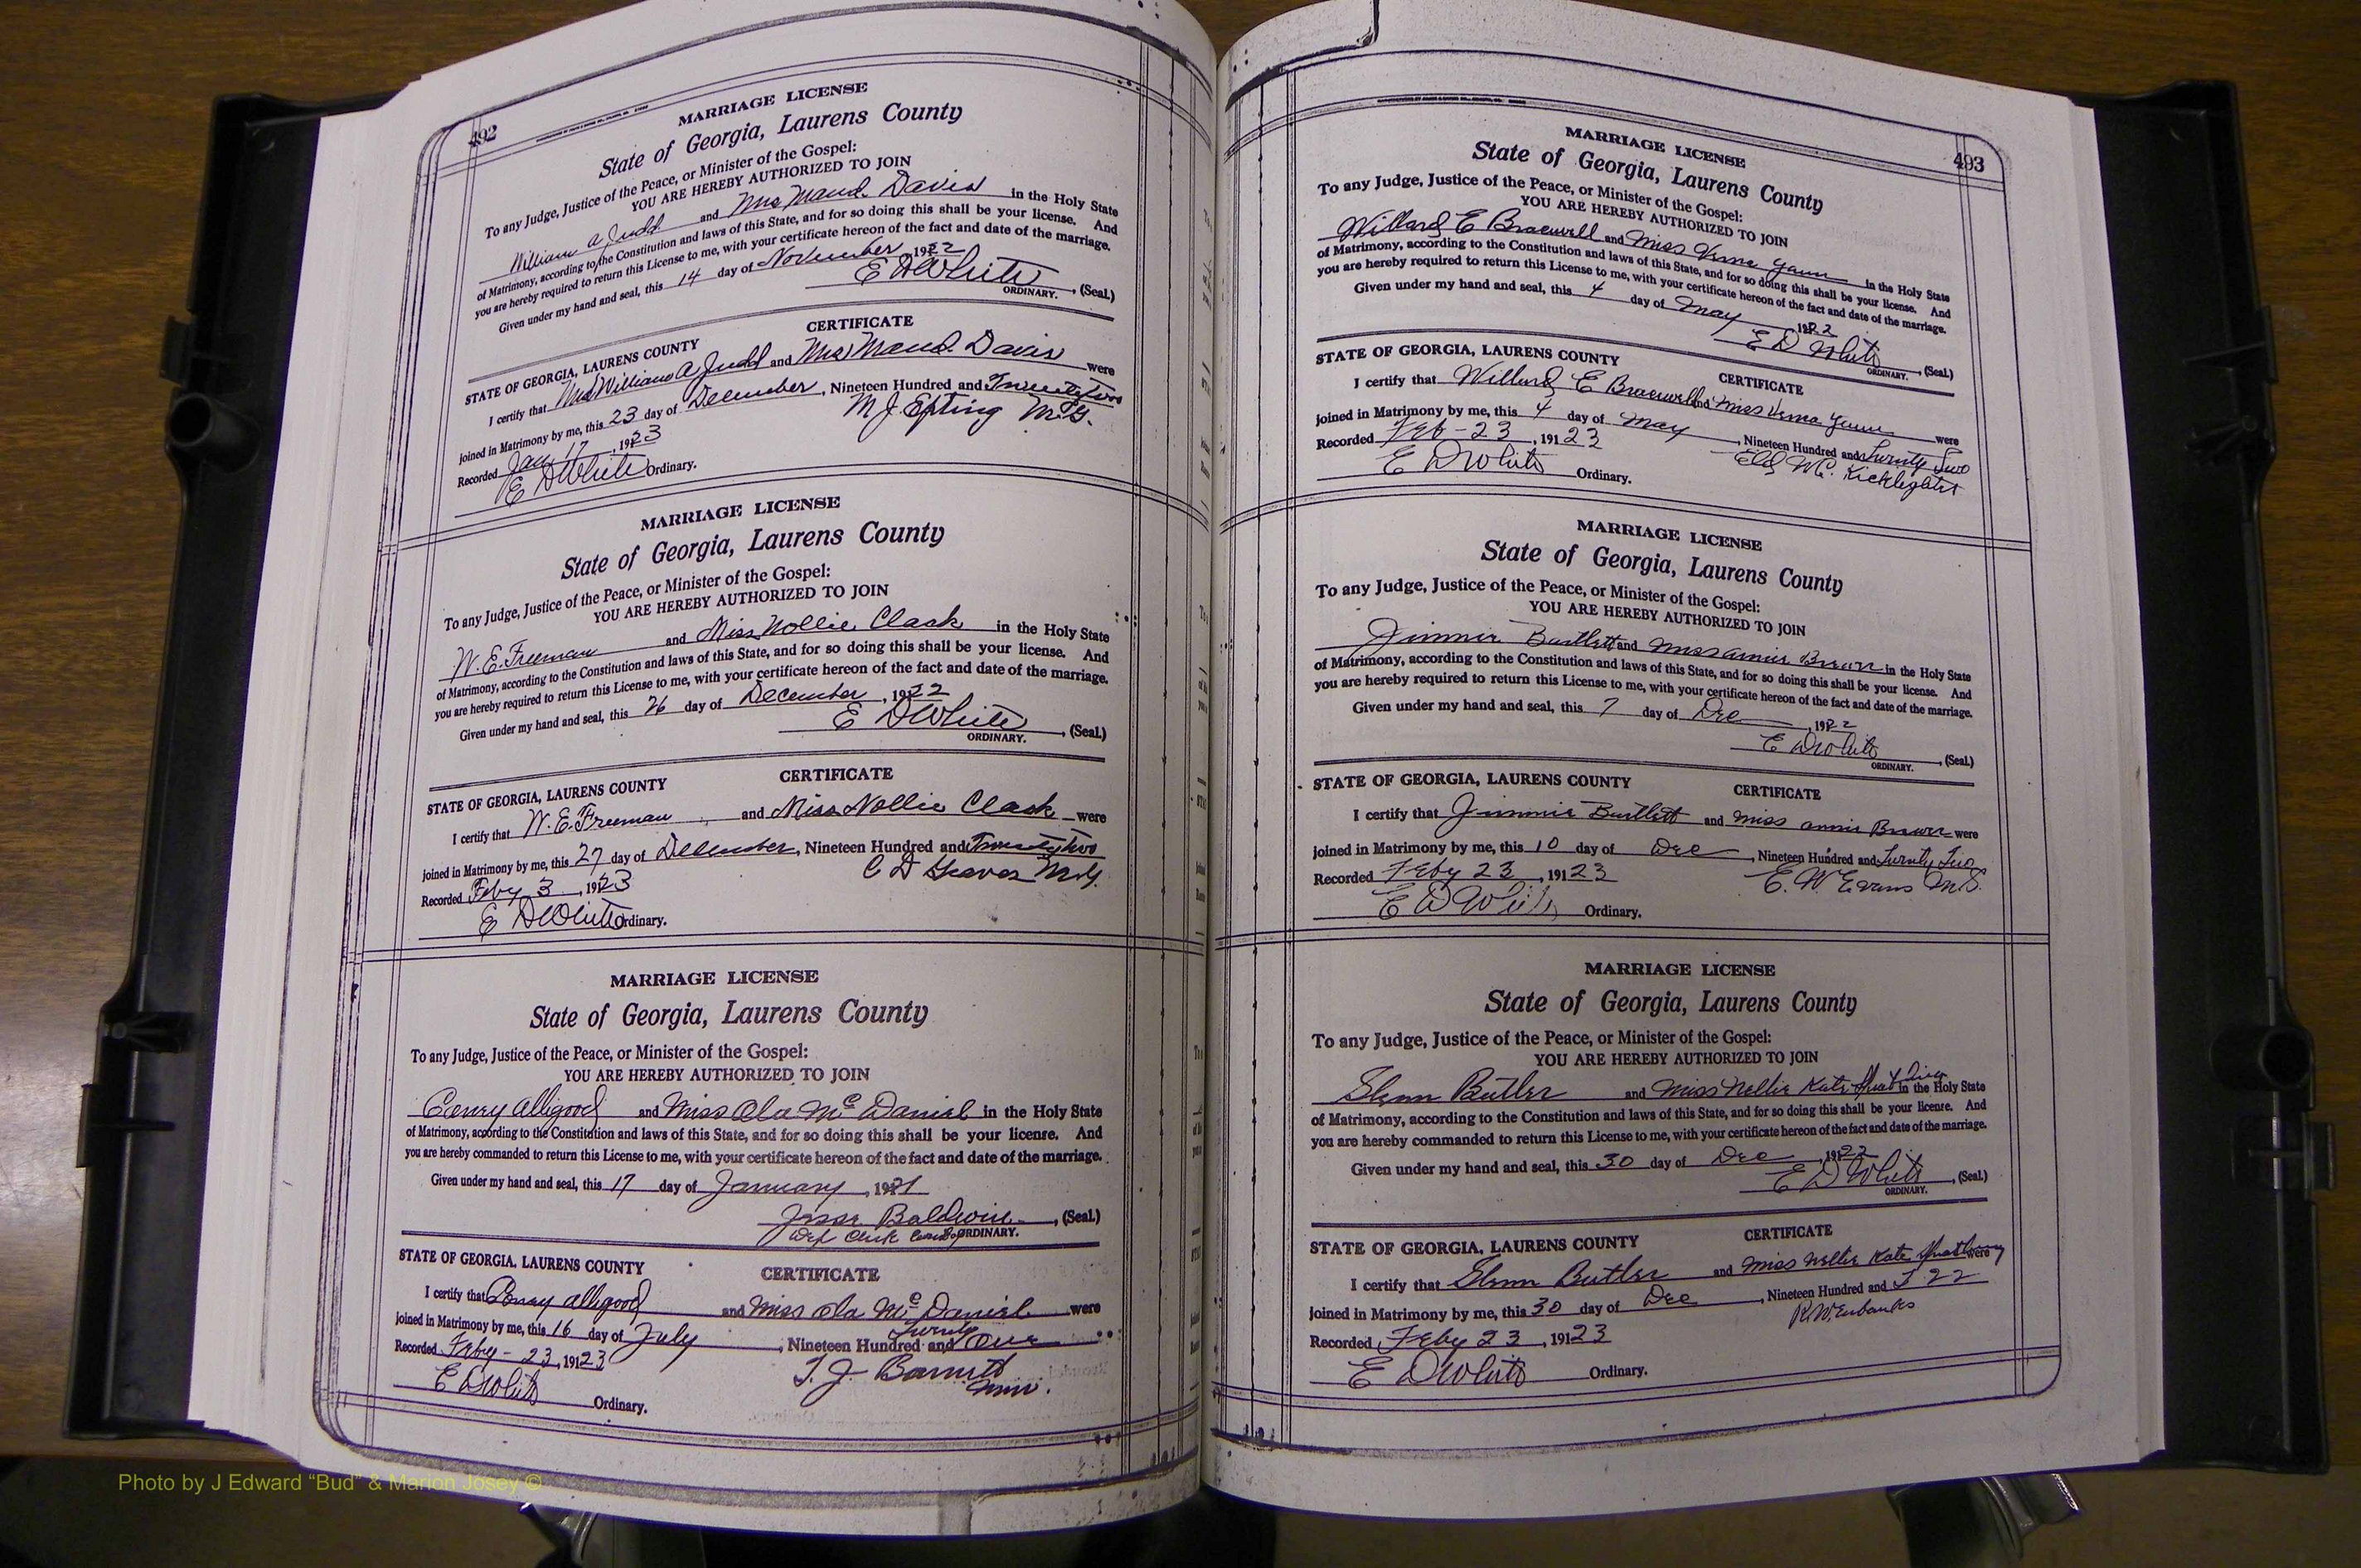 492
MARRIAGE LICENSE
State of Georgia, Laurens County
To any Judge, Justice of the Peace, or Minister of the Gospel:
YOU ARE HEREBY AUTHORIZED TO JOIN
William A Judd and Mrs Maud Davis in the Holy State
of Matrimony, according to the Constitution and laws of this State, and for so doing this shall be your license. And
you are hereby required to return this License to me, with your certificate hereon of the fact and date of the marriage.
Given under my hand and seal, this 14 day of November, 1922
E D White, (Seal.)
ORDINARY.
CERTIFICATE
STATE OF GEORGIA, LAURENS COUNTY
I certify that William A Judd and Mrs Maud Davis were
joined in Matrimony by me, this 23 day of December, Nineteen Hundred and Twenty two
Recorded Jan 17, 1923 M. J. Epting M.G.
E D White Ordinary.
MARRIAGE LICENSE
State of Georgia, Laurens County
To any Judge, Justice of the Peace, or Minister of the Gospel:
YOU ARE HEREBY AUTHORIZED TO JOIN
W. E. Freeman and Miss Nollie Clark in the Holy State
of Matrimony, according to the Constitution and laws of this State, and for so doing this shall be your license. And
you are hereby required to return this License to me, with your certificate hereon of the fact and date of the marriage.
Given under my hand and seal, this 26 day of December, 1922
E D White, (Seal.)
ORDINARY.
CERTIFICATE
STATE OF GEORGIA, LAURENS COUNTY
I certify that W. E. Freeman and Miss Nollie Clark were
joined in Matrimony by me, this 27 day of December, Nineteen Hundred and Twenty two
Recorded Feby 3, 1923 C D Graves M.G.
E D White Ordinary.
MARRIAGE LICENSE
State of Georgia, Laurens County
To any Judge, Justice of the Peace, or Minister of the Gospel:
YOU ARE HEREBY AUTHORIZED TO JOIN
Alligood and Miss Ola McDaniel in the Holy State
of Matrimony, according to the Constitution and laws of this State, and for so doing this shall be your license. And
you are hereby commanded to return this License to me, with your certificate hereon of the fact and date of the marriage.
Given under my hand and seal, this 17 day of January, 1921
Baldwin, (Seal.)
Dep Clerk ORDINARY.
STATE OF GEORGIA, LAURENS COUNTY
CERTIFICATE
I certify that Alligood and Miss Ola McDaniel were
joined in Matrimony by me, this 16 day of July, Nineteen Hundred and Twenty One
Recorded Feby - 23, 19123 T. J. Barnett
E D White Ordinary. Min.
493
MARRIAGE LICENSE
State of Georgia, Laurens County
To any Judge, Justice of the Peace, or Minister of the Gospel:
YOU ARE HEREBY AUTHORIZED TO JOIN
Willard E Bracewell and Miss Verna in the Holy State
of Matrimony, according to the Constitution and laws of this State, and for so doing this shall be your license. And
you are hereby required to return this License to me, with your certificate hereon of the fact and date of the marriage.
Given under my hand and seal, this 4 day of May 1922
E D White, (Seal)
ORDINARY.
STATE OF GEORGIA, LAURENS COUNTY
CERTIFICATE
I certify that Willard E Bracewell and Miss Verna were
joined in Matrimony by me, this 4 day of May, Nineteen Hundred and Twenty Two
Recorded Feb - 23, 19123 Eld Kicklighter
E D White Ordinary.
MARRIAGE LICENSE
State of Georgia, Laurens County
To any Judge, Justice of the Peace, or Minister of the Gospel:
YOU ARE HEREBY AUTHORIZED TO JOIN
Jimmie Bartlett and Miss Annie in the Holy State
of Matrimony, according to the Constitution and laws of this State, and for so doing this shall be your license. And
you are hereby required to return this License to me, with your certificate hereon of the fact and date of the marriage.
Given under my hand and seal, this 7 day of Dec, 1922
E D White, (Seal)
ORDINARY.
STATE OF GEORGIA, LAURENS COUNTY
CERTIFICATE
I certify that Jimmie Bartlett and Miss Annie were
joined in Matrimony by me, this 10 day of Dec, Nineteen Hundred and Twenty Two
Recorded Feby 23, 19123 E. W Evans
E D White Ordinary.
MARRIAGE LICENSE
State of Georgia, Laurens County
To any Judge, Justice of the Peace, or Minister of the Gospel:
YOU ARE HEREBY AUTHORIZED TO JOIN
Glenn Butler and Miss Nellie Kate in the Holy State
of Matrimony, according to the Constitution and laws of this State, and for so doing this shall be your license. And
you are hereby commanded to return this License to me, with your certificate hereon of the fact and date of the marriage.
Given under my hand and seal, this 30 day of Dec, 1922
E D White, (Seal)
ORDINARY.
CERTIFICATE
STATE OF GEORGIA, LAURENS COUNTY
I certify that Glenn Butler and Miss Nellie Kate were
joined in Matrimony by me, this 30 day of Dec, Nineteen Hundred and 22
Recorded Feby 23, 19123 R. W. Eubanks
E D White Ordinary.
Photo by J Edward “Bud” & Marion Josey ©